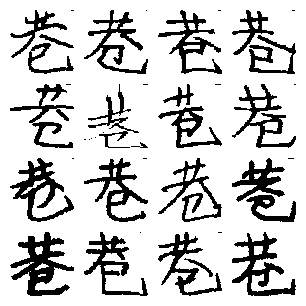 巷巷巷巷
巷巷巷巷
巷巷巷巷
巷巷巷巷